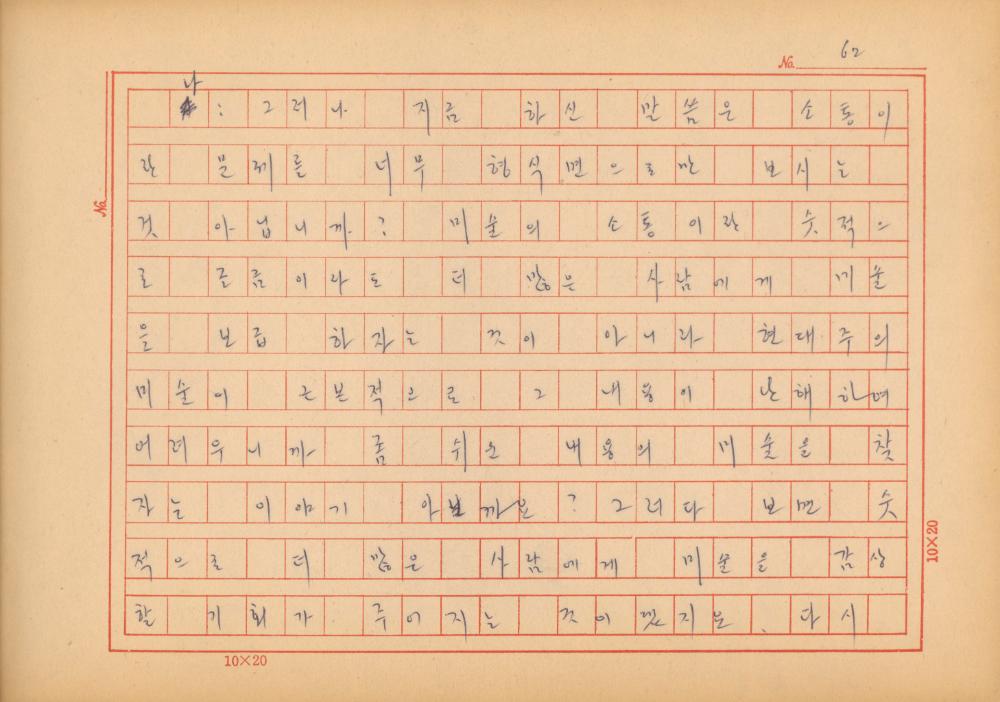 No. 62
나 : 그러나 지금 하신 말씀은 소통이
란 문제를 너무 형식면으로만 보시는
것 아닙니까? 미술의 소통이란 숫적으
로 조름이라도 더 많은 사람에게 미술
을 보급 하자는 것이 아니라 현대주의
미술이 근본적으로 그 내용이 난해하며
어려우니까 좀 쉬운 내용의 미술을 찾
자는 이야기 아닐까요? 그러다 보면 숫
적으로 더 많은 사람에게 미술을 감상
할 기회가 주어지는 것이겠지요. 다시
No.
10×20
10×20